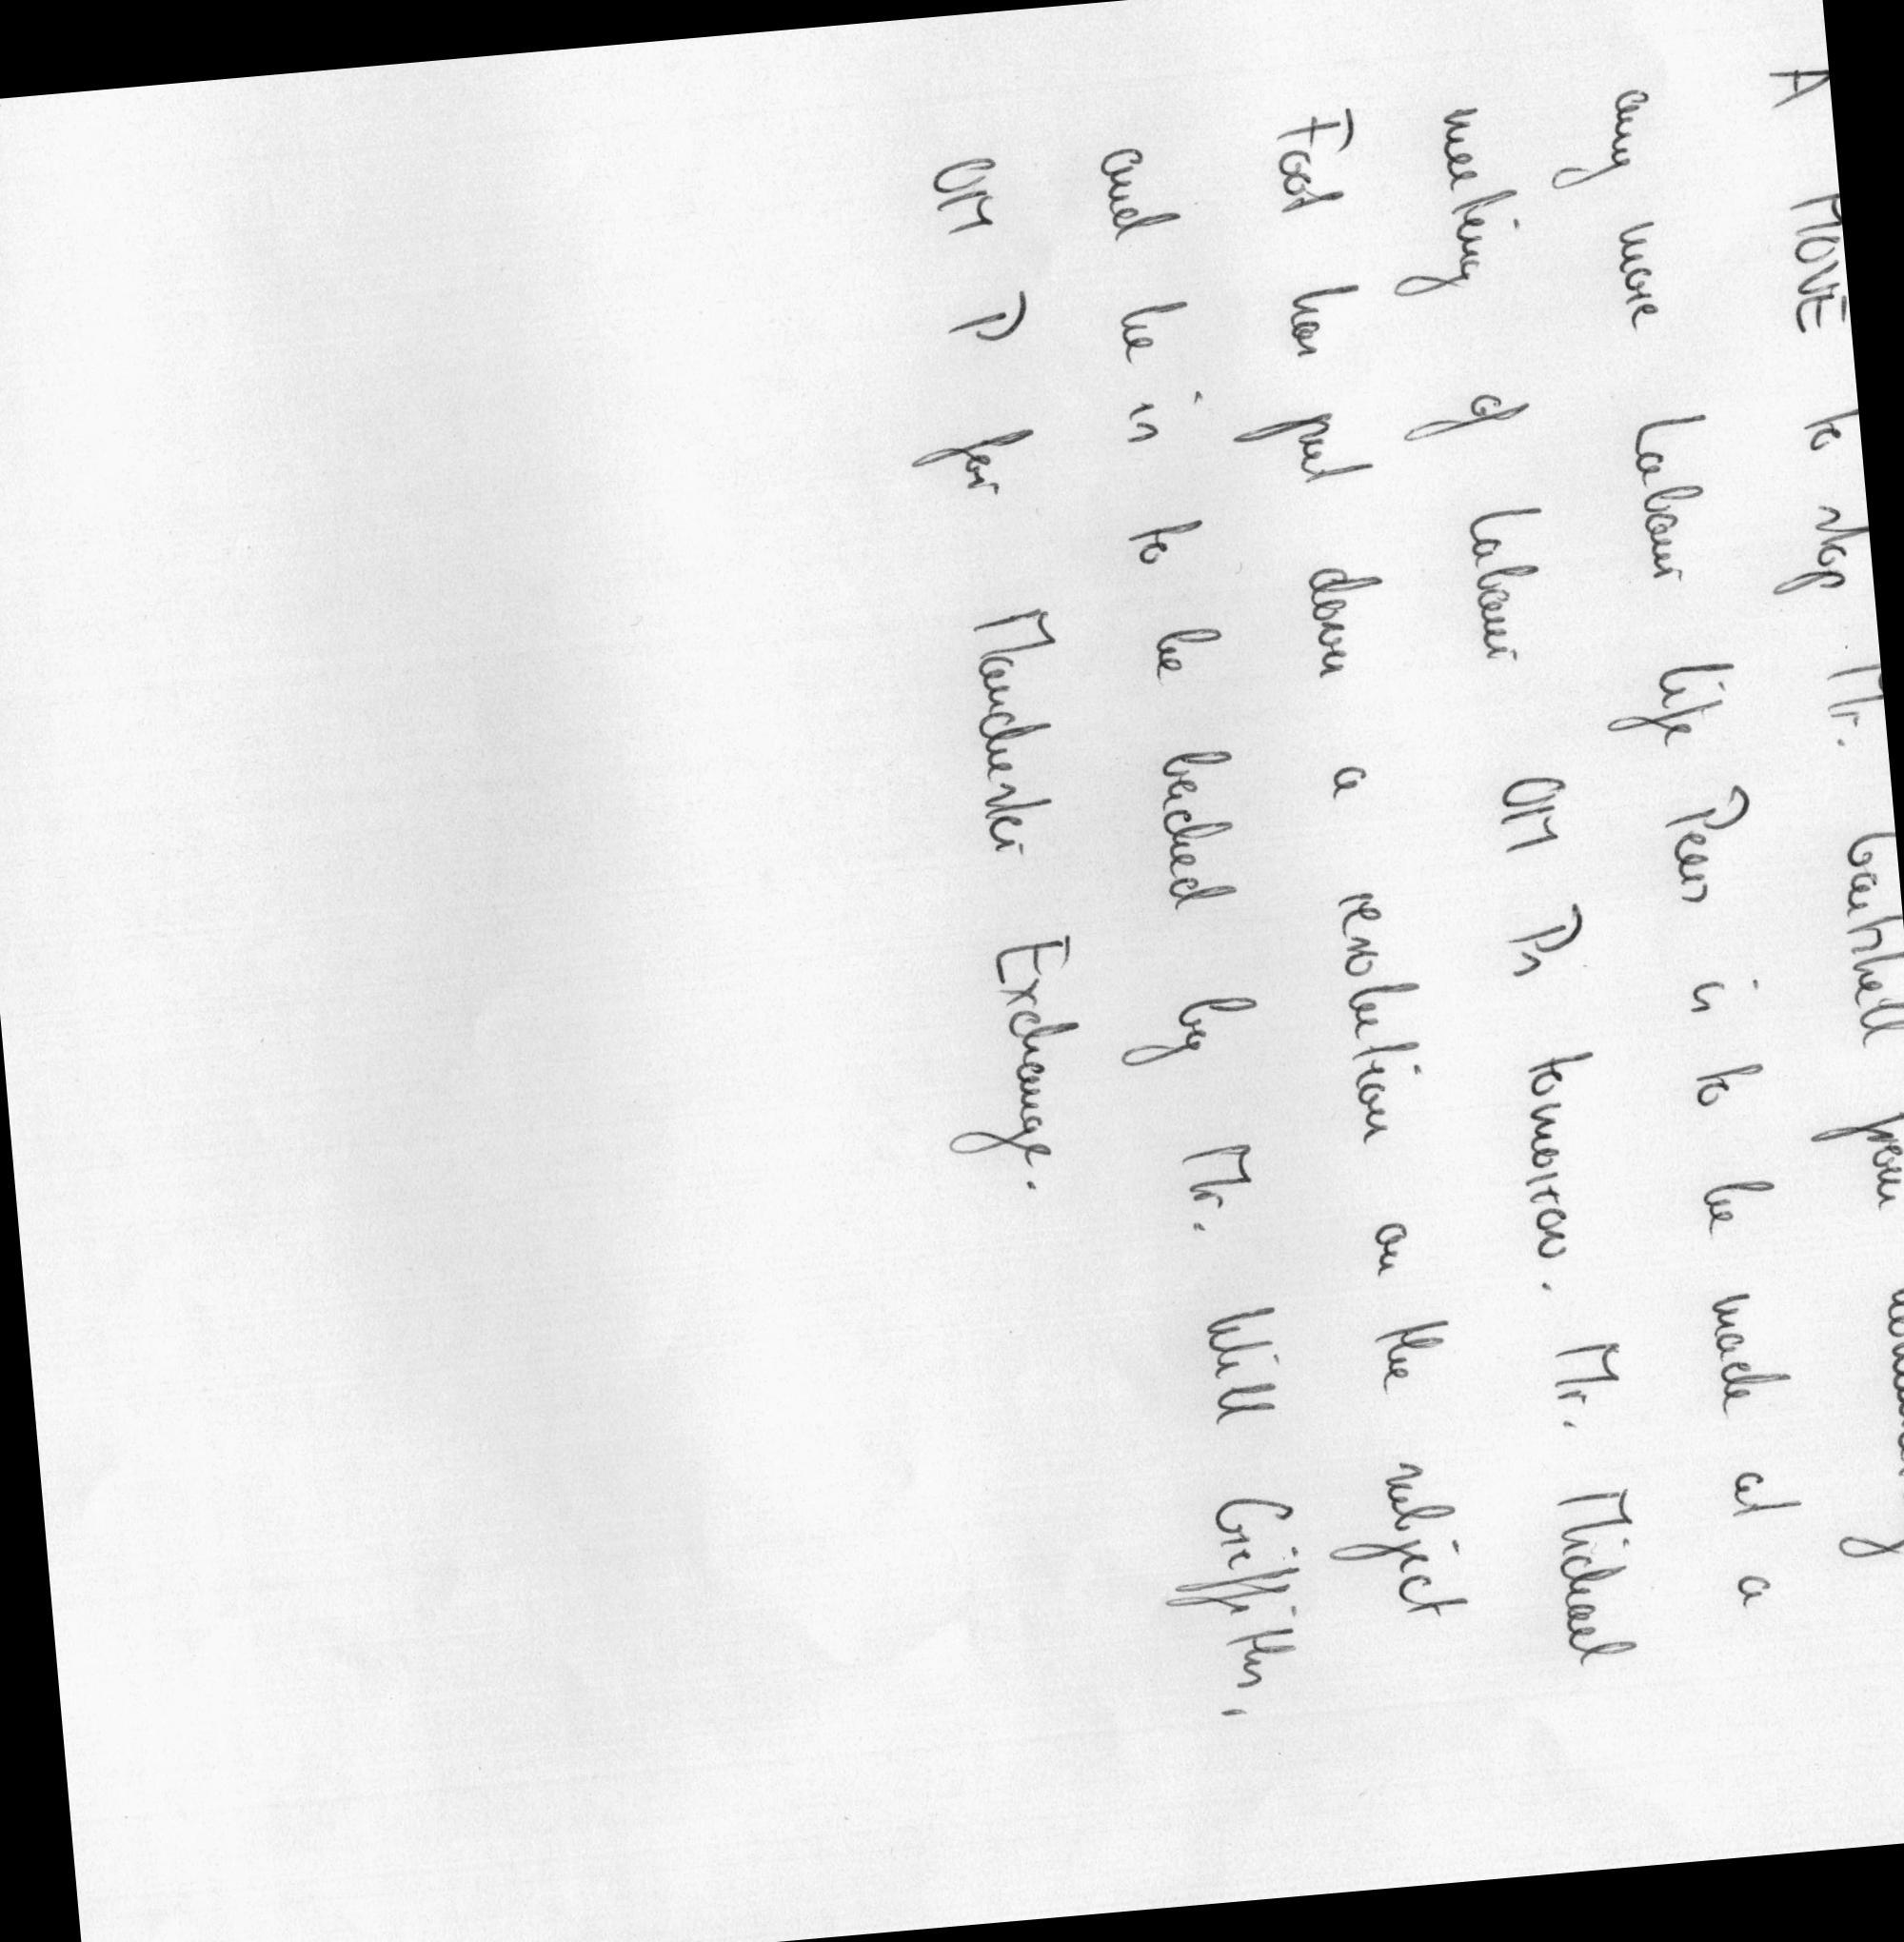 A MOVE to stop Mr. Gaitskell from
any more Labour life Peers is to be made at a
meeting of Labour OM Ps tomorrow. Mr. Michael
Foot has put down a resolution on the subject
and he is to be backed by Mr. Will Griffiths,
OM P for Manchester Exchange.